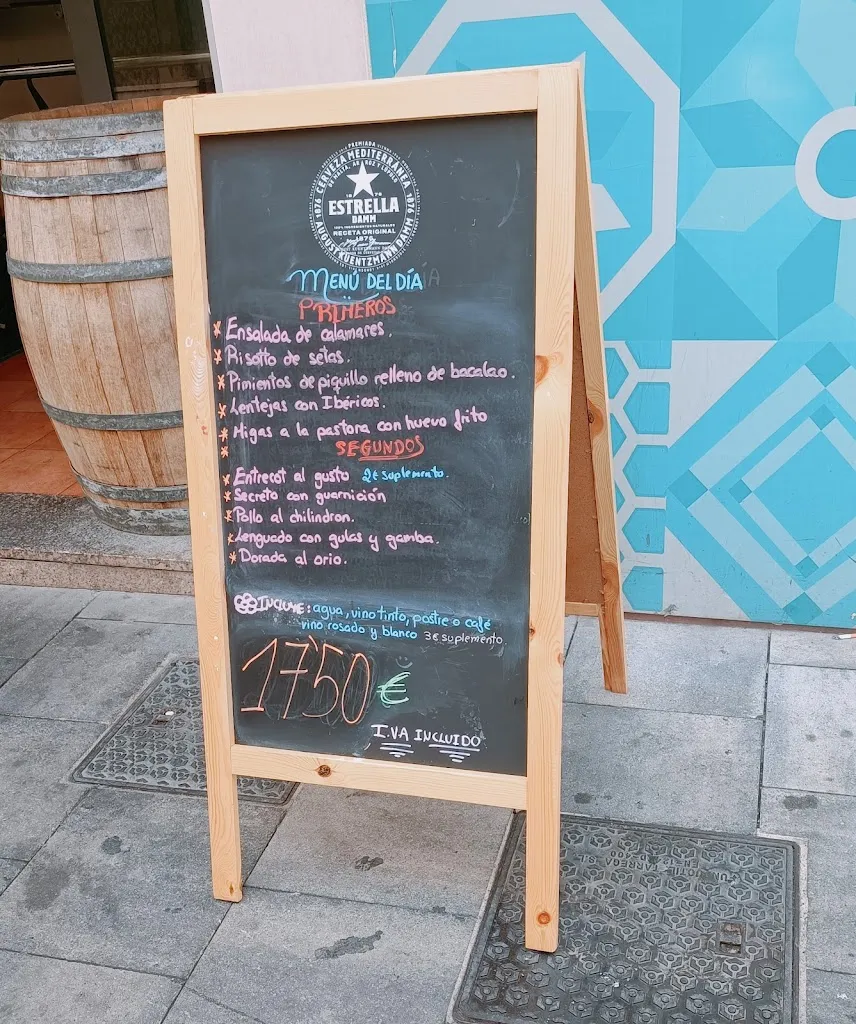 PREMIADA
CERVEZA MEDITERRÁNEA
DE MALTA, ARROZ Y LÚPULO
1876
ESTRELLA
DAMM
100% INGREDIENTES NATURALES
RECETA ORIGINAL
1876
1876 AUGUST KUENTZMANN DAMM 1876
MENÚ DEL DÍA
PRIMEROS
* Ensalada de calamares.
* Risotto de setas.
* Pimientos de piquillo relleno de bacalao.
* Lentejas con Ibéricos.
* Migas a la pastora con huevo frito
*
SEGUNDOS
* Entrecot al gusto 2€ suplemento.
* Secreto con guarnición
* Pollo al chilindron.
* Lenguado con gulas y gamba.
* Dorada al orio.
INCLUYE: agua, vino tinto, postre o café
vino rosado y blanco 3€ suplemento
17'50 €
I.VA INCLUIDO